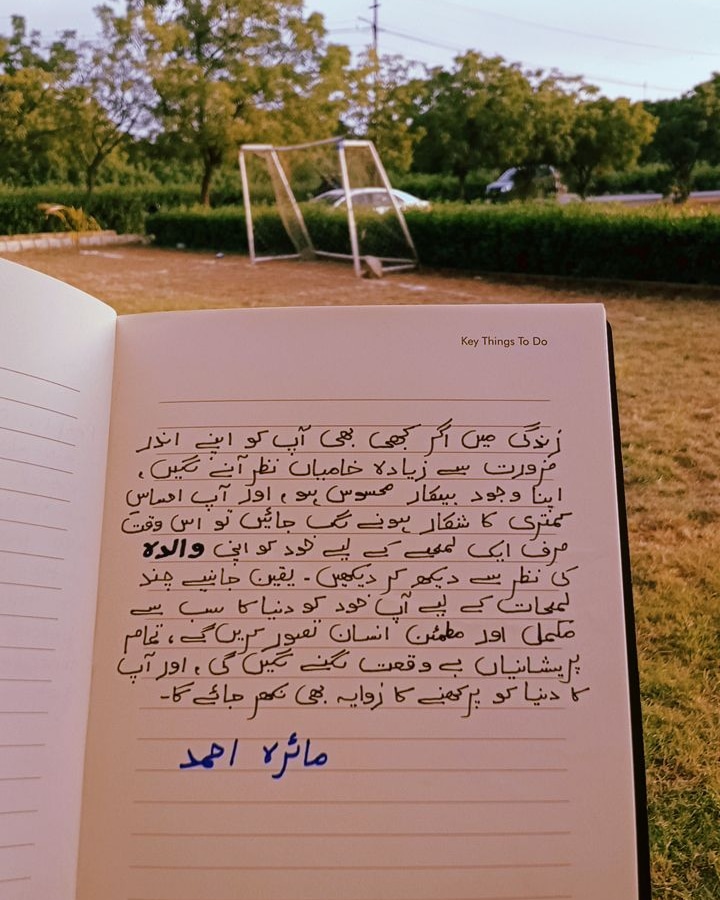 Key Things To Do
زندگی میں اگر کبھی بھی آپ کو اپنے اندر
ضرورت سے زیادہ خامیاں نظر آنے لگیں،
اپنا وجود بیکار محسوس ہو، اور آپ احساس
کمتری کا شکار ہونے لگ جائیں تو اس وقت
صرف ایک لمحے کے لیے خود کو اپنی والدہ
کی نظر سے دیکھ کر دیکھیں۔ یقین جانیے چند
لمحات کے لیے آپ خود کو دنیا کا سب سے
مکمل اور مطمئن انسان تصور کریں گے، تمام
پریشانیاں بے وقعت لگنے لگیں گی، اور آپ
کا دنیا کو پرکھنے کا زاویہ بھی نکھر جائے گا۔
مائرہ احمد